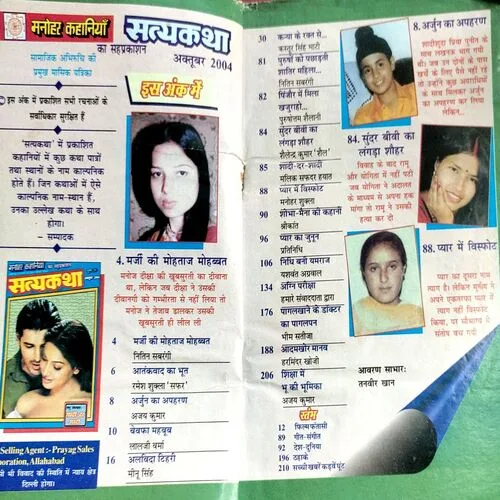 मनोहर कहानियाँ
सत्यकथा
का सहप्रकाशन
सामाजिक अभिरुचि की
प्रमुख मासिक पत्रिका
अक्तूबर 2004
इस अंक में
इस अंक में प्रकाशित सभी रचनाओं के
सर्वाधिकार सुरक्षित हैं
'सत्यकथा' में प्रकाशित
कहानियों में कुछ कथा पात्रों
तथा स्थानों के नाम काल्पनिक
होते हैं। जिन कथाओं में ऐसे
काल्पनिक नाम-स्थान हैं,
उनका उल्लेख कथा के साथ
होगा।
– सम्पादक
मनोहर कहानियाँ
सत्यकथा
Selling Agent :- Prayag Sales
poration, Allahabad
भी विवाद की स्थिति में न्याय क्षेत्र
दिल्ली होगा।
4. मर्जी की मोहताज मोहब्बत
मनोज दीक्षा की खूबसूरती का दीवाना
था, लेकिन जब दीक्षा ने उसकी
दीवानगी को गम्भीरता से नहीं लिया तो
मनोज ने तेजाब डालकर उसकी
खूबसूरती ही लील ली
4 मर्जी की मोहताज मोहब्बत
नितिन सबरंगी
6 आतंकवाद का भूत
रमेश शुक्ला 'सफर'
8 अर्जुन का अपहरण
अजय कुमार
10 बेवफा महबूब
लालजी वर्मा
16 अलविदा टिहरी
मीनू सिंह
30 कन्या के रक्त से...
कस्तूर सिंह भाटी
81 पुरुषों को पछाड़ती
शातिर महिला...
नितिन सबरंगी
82 पिंजौर में मिला
खजुराहो...
पुरुषोत्तम शैलानी
84 सुंदर बीवी का
लंगड़ा शौहर
शैलेन्द्र कुमार 'शैल'
85 शादी-दर-शादी
मलिक सफदर हयात
88 प्यार में विस्फोट
मनोहर शुक्ला
90 शीभा-मैना की कहानी
श्रीकांत
96 प्यार का जुनून
प्रतिनिधि
106 निधि बनी यमराज
यशवंत अग्रवाल
134 अग्नि परीक्षा
हमारे संवाददाता द्वारा
176 पागलखाने के डॉक्टर
का पागलपन
भीम सतीजा
188 आदमखोर मानव
हरमिंदर खोजी
206 शिक्षा में
भू की भूमिका
अजय कुमार
स्तंभ
12 फिल्म फंतासी
89 गीत-संगीत
92 देश-दुनिया
196 ठहाके
210 सच्ची खबरें कड़वे घूंट
8. अर्जुन का अपहरण
शादीशुदा प्रिया पुनीत के
साथ लखनऊ भाग गयी
थी। जब उन दोनों के पास
खर्च के लिए पैसे नहीं रहे
तो उन्होंने कुछ अपराधियों
के साथ मिलकर अर्जुन
का अपहरण कर लिया
लेकिन...
84. सुंदर बीवी का
लंगड़ा शौहर
विवाह के बाद रामू
और योगिता में नहीं पटी
जब योगिता ने अदालत
के माध्यम से अपना हक
मांगा तो रामू ने उसकी
हत्या कर दी
88. प्यार में विस्फोट
प्यार का दूसरा नाम
त्याग है। लेकिन सुर्मेध ने
अपने एकतरफा प्यार में
त्याग नहीं विस्फोट
किया, पर सौभाग्य से
संतोष बच गयी
आवरण साभार:
तनवीर खान